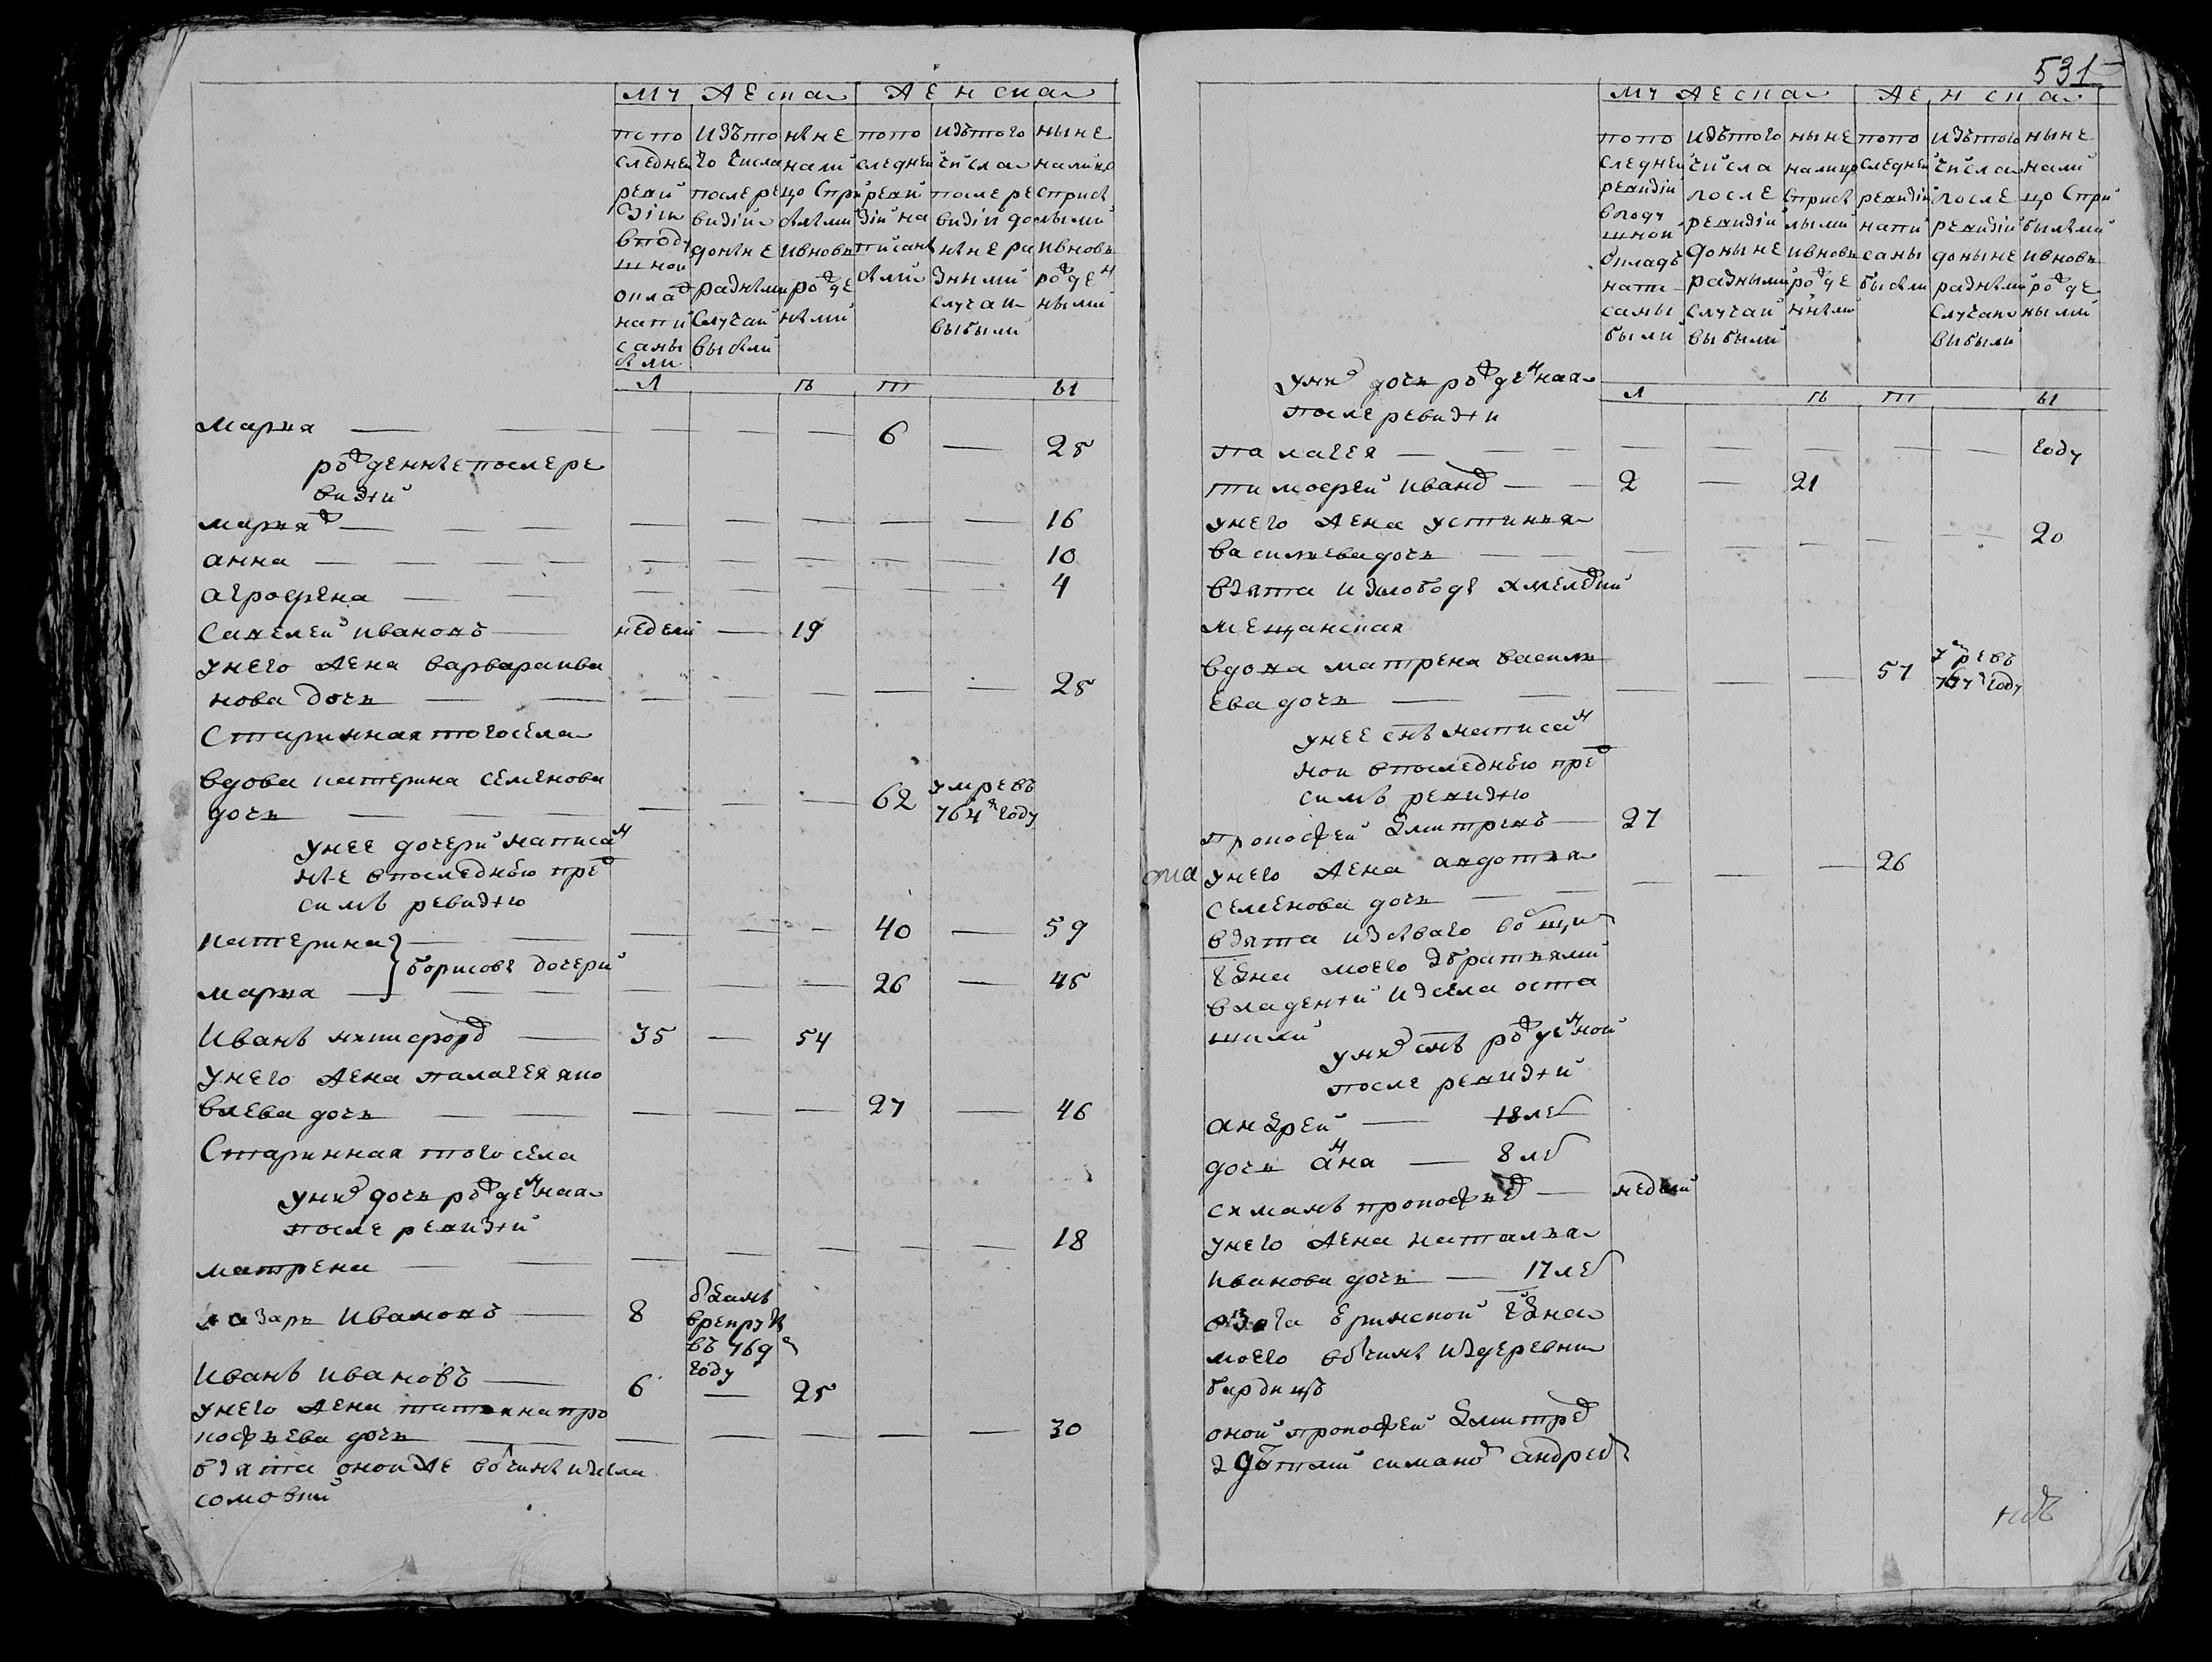 531
Мужеска Женска
попо следней реви зіи вподу шной окла напи саны были
Изъто го числа послере визіи доныне разными случаи выбыли
ныне нали цо спри былыми ивновь рожде ными
попо следней реви зіи на писаны были
Изътого числа послере визіи до ныне ра зными случаи выбыли
ныне налицо сприб лыми ивновь рожден ными
л п т ы
марья — 6 — 25
рожденные послере
визіи
марья — 16
анна — 10
агрофена — 4
Савелей Ивановъ — недели — 19
унего жена варвара ива
нова дочь — 25
Старинная тогосела
вдова катерина семенова
дочь — 62 умре въ
764 году
унее дочери написан
ные впоследнюю пре
симъ ревизію
катерина — 40 — 59
борисовы дочери
марья — 26 — 45
Иванъ никифоро — 35 — 54
унего жена палагея яко
влева дочь — 27 — 46
Старинная тогосела
уних дочь рожденная
после ревизіи
матрена — 18
лазарь Ивановъ — 8
отданъ
врекруты
въ 769
году
Иванъ Ивановъ — 6 — 25
унего жена татьяна про
кофьева дочь — 30
взята оной же вотчины изсела
сомовки
Мужеска Женска
попо следней ревизіи вподу шной окладъ напи саны были
Изътого числа после ревизіи доныне разными случаи выбыли
ныне налицо приб лыми ивновь рожде нными
попо следней ревизіи напи саны были
Изътого числа после ревизіи доныне разными случаи выбыли
ныне нали цо спри былыми ивновь рожде ными
уних дочь рожденная
после ревизіи
л п т ы
палагея — году
тимофей Ивано — 2 — 21
унего жена устинья
васильева дочь — 20
взята изслободы хмел
мещанская
вдова матрена василь
ева дочь — 57 умре въ
году
унее сынъ написан
ной впоследнюю пре
симъ ревизію
прокофей дмитревъ — 27
унего жена авдотья
семенова дочь — 26
взята изъ во общи
моего збратьями
владеніи изсела оста
шики
уних сынъ рожденной
после ревизіи
андрей — 18 ле
дочь анна — 8 ле
симанъ прокофье — недели
унего жена наталья
Иванова дочь — 17 ле
взята
моего вотчины издеревни
оной прокофей дмитре
здетми симано андре